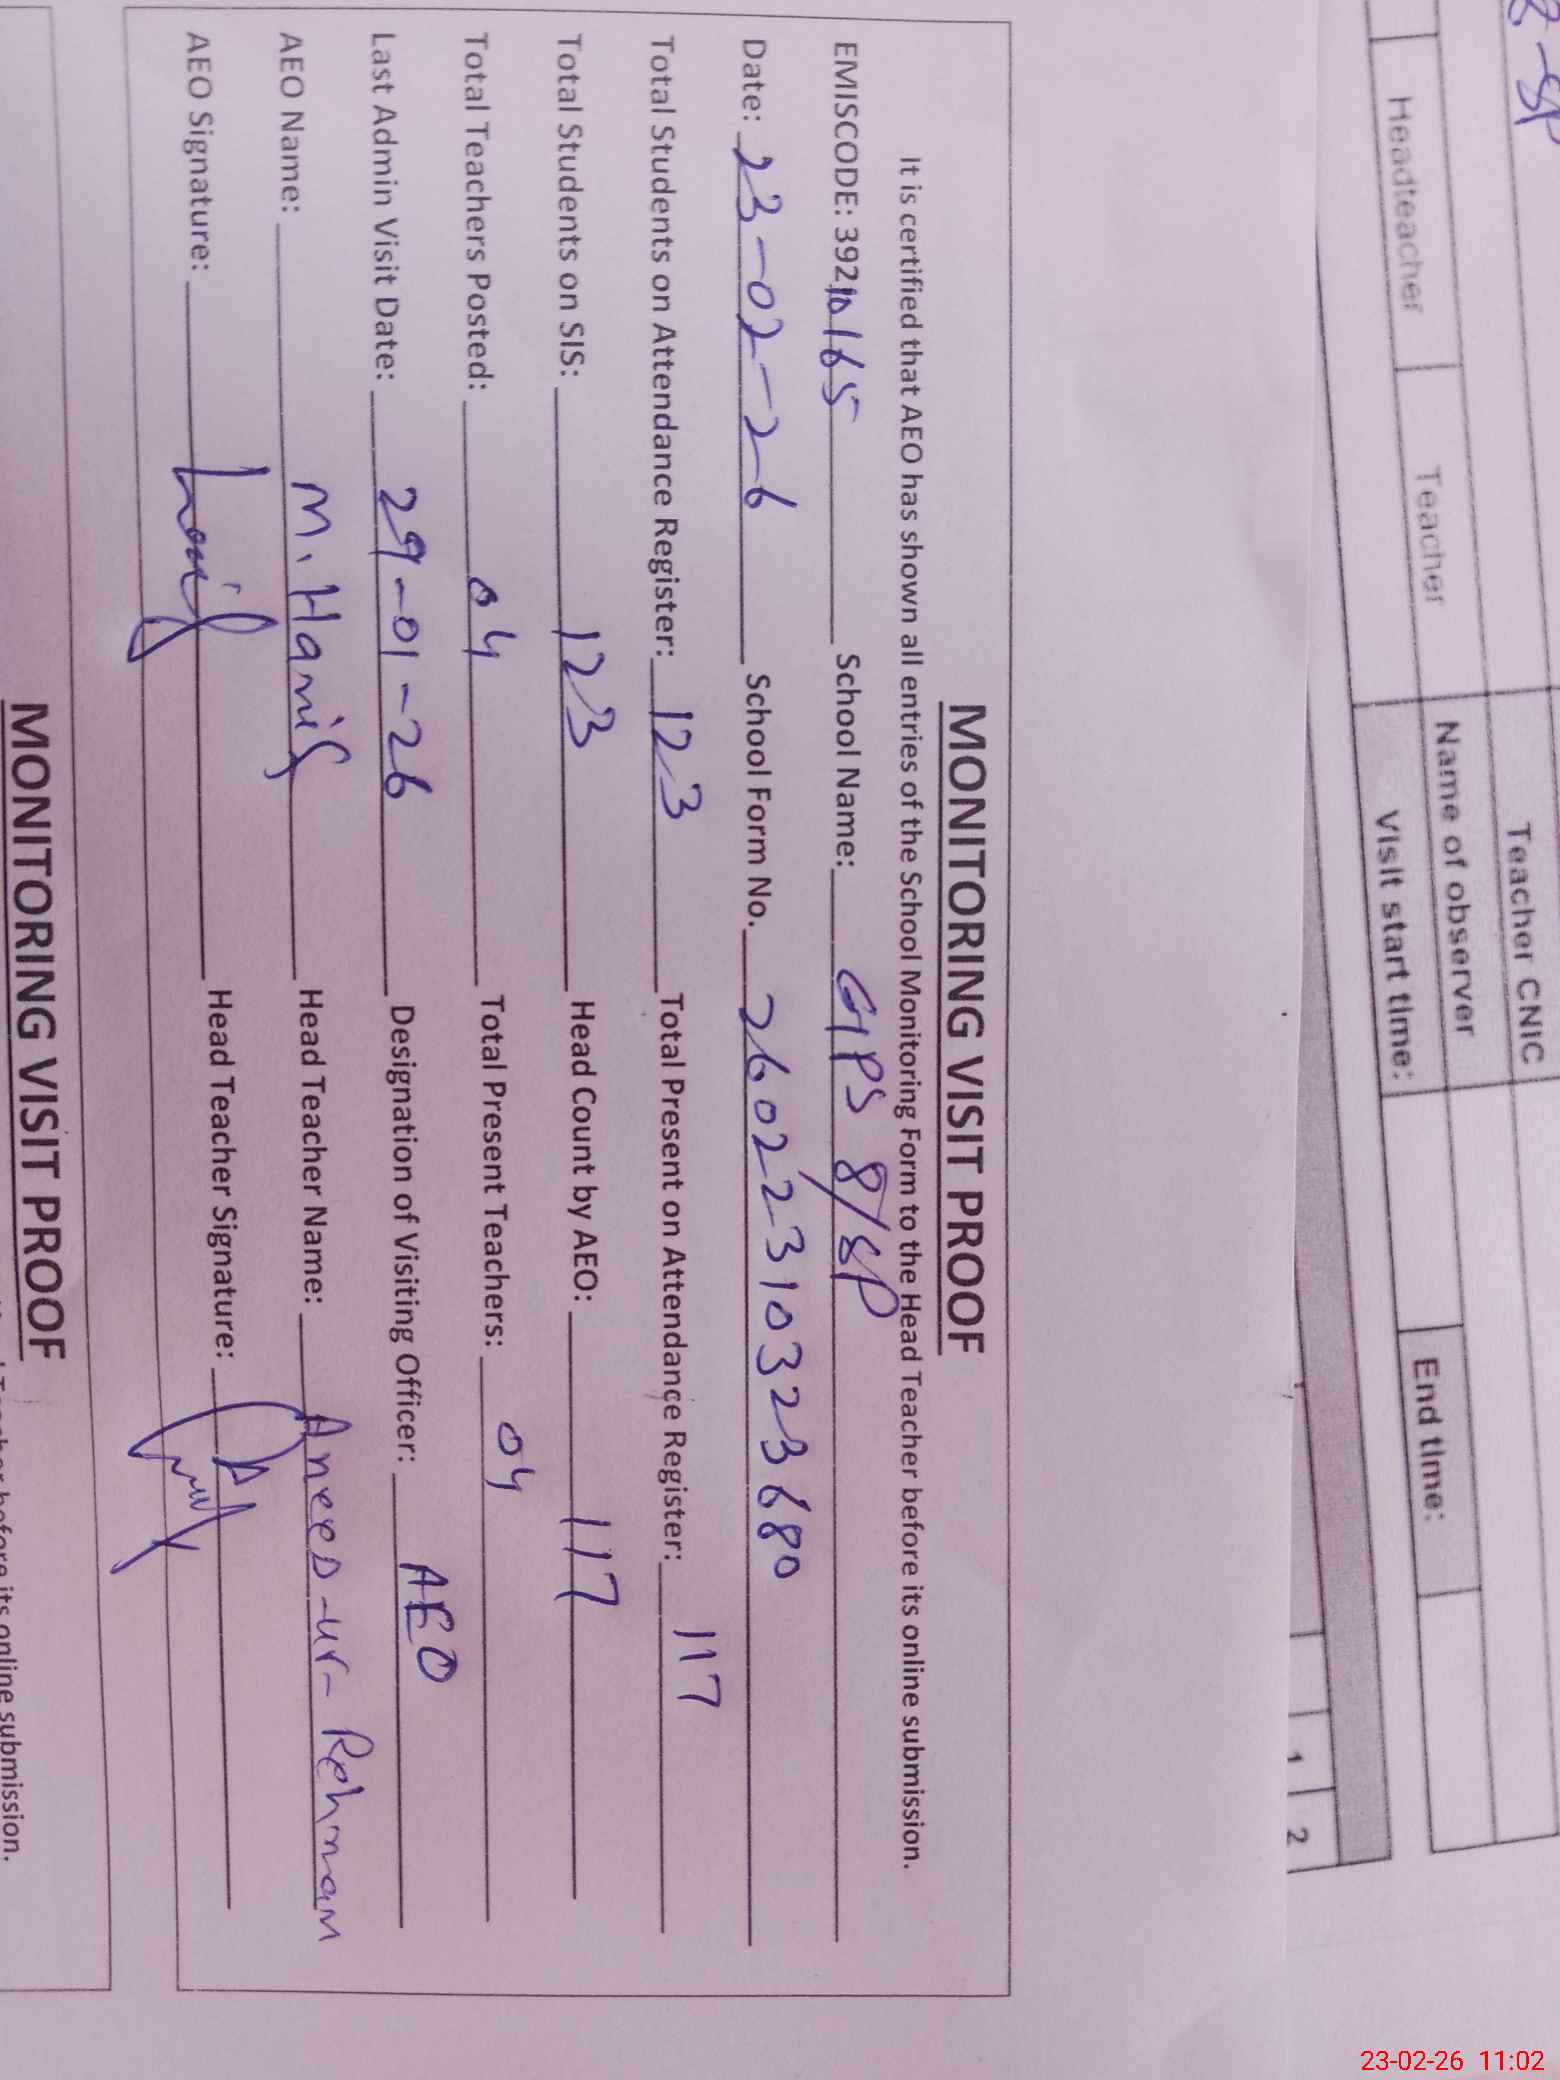 8-SP
Teacher CNIC
Headteacher Teacher Name of observer
Visit start time: End time:
1 2
MONITORING VISIT PROOF
It is certified that AEO has shown all entries of the School Monitoring Form to the Head Teacher before its online submission.
EMISCODE: 39210165 School Name: GPS 8/8P
Date: 23-02-26 School Form No. 260223103236​80
Total Students on Attendance Register: 123 Total Present on Attendance Register: 117
Total Students on SIS: 123 Head Count by AEO: 117
Total Teachers Posted: 04 Total Present Teachers: 04
Last Admin Visit Date: 29-01-26 Designation of Visiting Officer: AEO
AEO Name: M. Hanif Head Teacher Name: Anees-ur-Rehman
AEO Signature: Hanif Head Teacher Signature:
MONITORING VISIT PROOF
before its online submission.
23-02-26 11:02